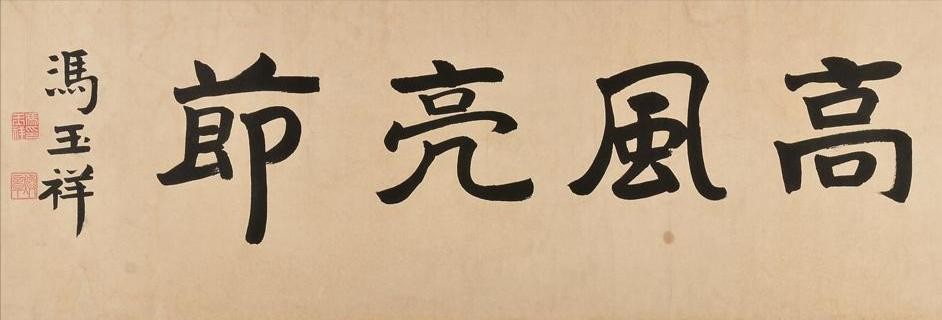 高風亮節
馮玉祥